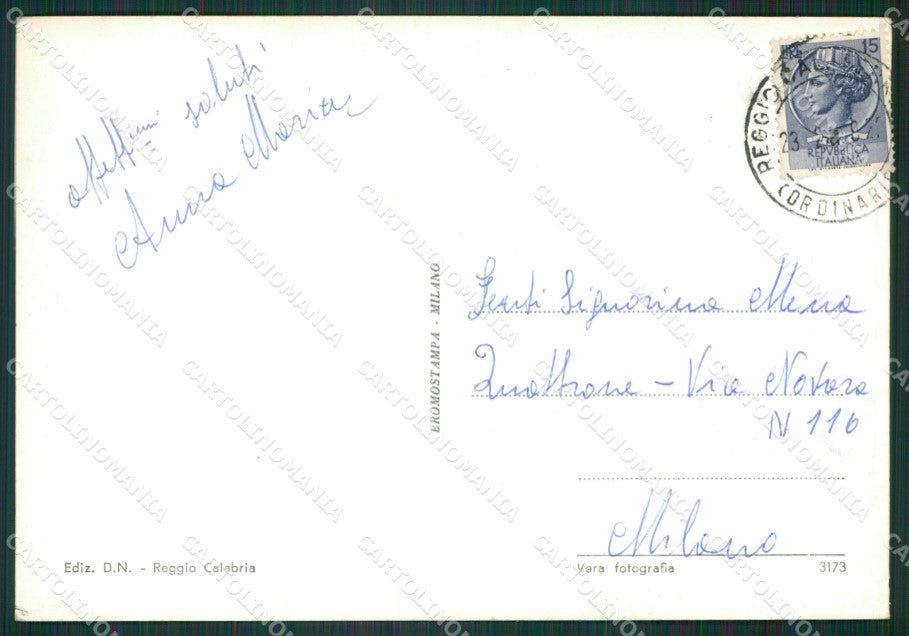 affett.mi saluti
Anna Maria
EROMOSTAMPA - MILANO
LIRE 15
REPVBBLICA
ITALIANA
REGGIO CAL
23
(ORDINARI
Gent. Signorina Mena
Quattrone - Via Novara
N 116
Milano
Ediz. D.N. - Reggio Calabria
Vera fotografia
3173
CARTOLINOMANIA